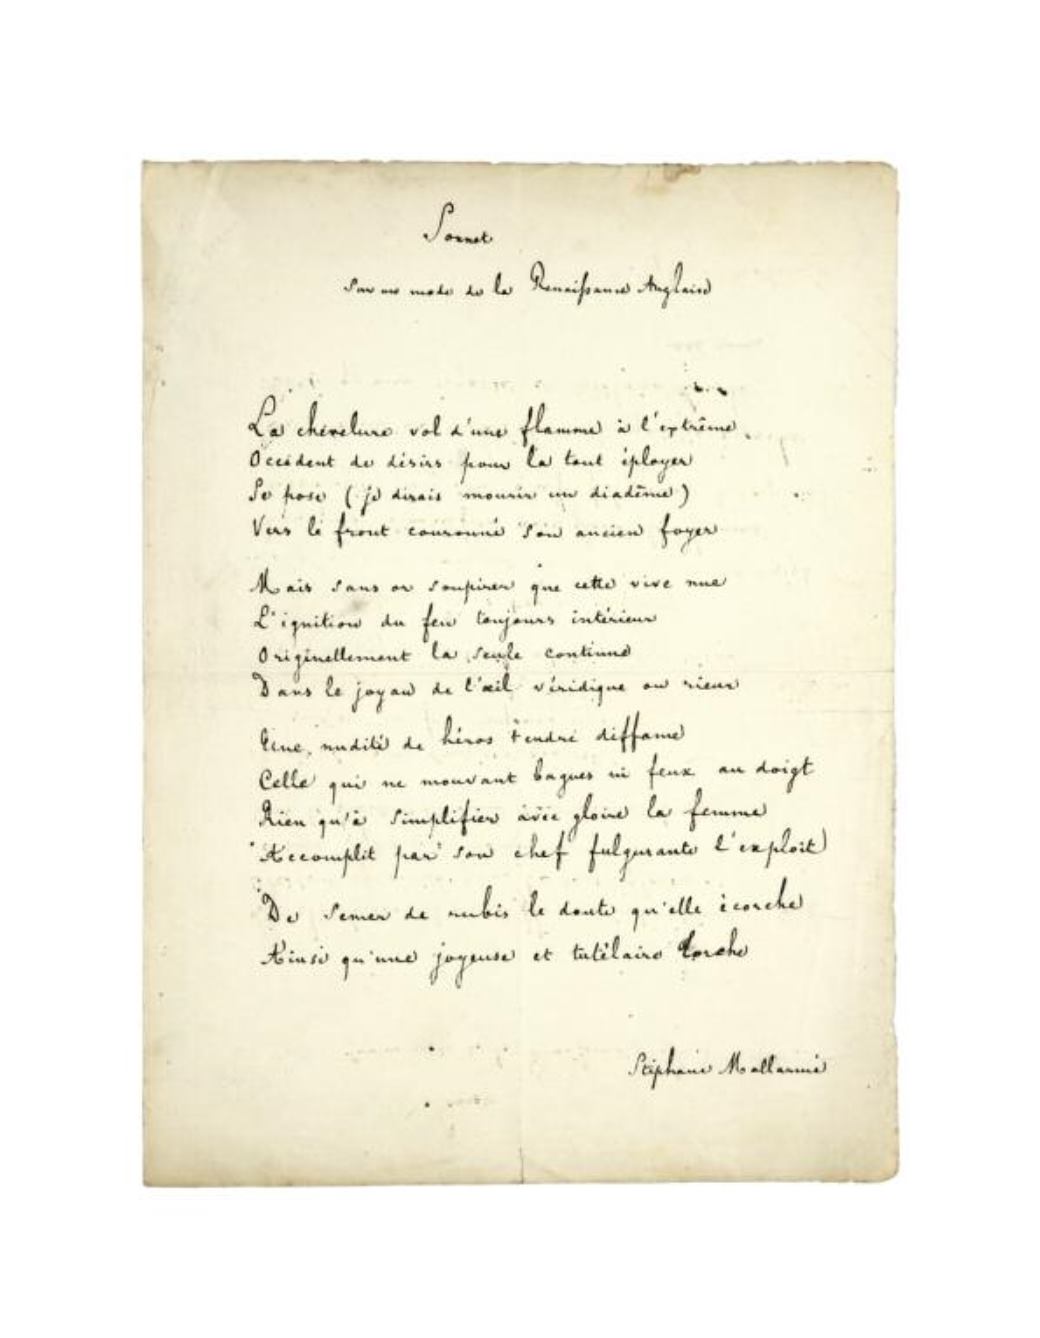 Sonnet
sur un mode de la Renaissance Anglaise
La chevelure vol d'une flamme à l'extrême
Occident de désirs pour la tout éployer
Se pose (je dirais mourir un diadème)
Vers le front couronné son ancien foyer
Mais sans or soupirer que cette vive nue
L'ignition du feu toujours intérieur
Originellement la seule continue
Dans le joyau de l'œil véridique ou rieur
Une nudité de héros tendre diffame
Celle qui ne mouvant bagues ni feux au doigt
Rien qu'à simplifier avec gloire la femme
Accomplit par son chef fulgurante l'exploit
De semer de rubis le doute qu'elle écorche
Ainsi qu'une joyeuse et tutélaire torche
Stéphane Mallarmé